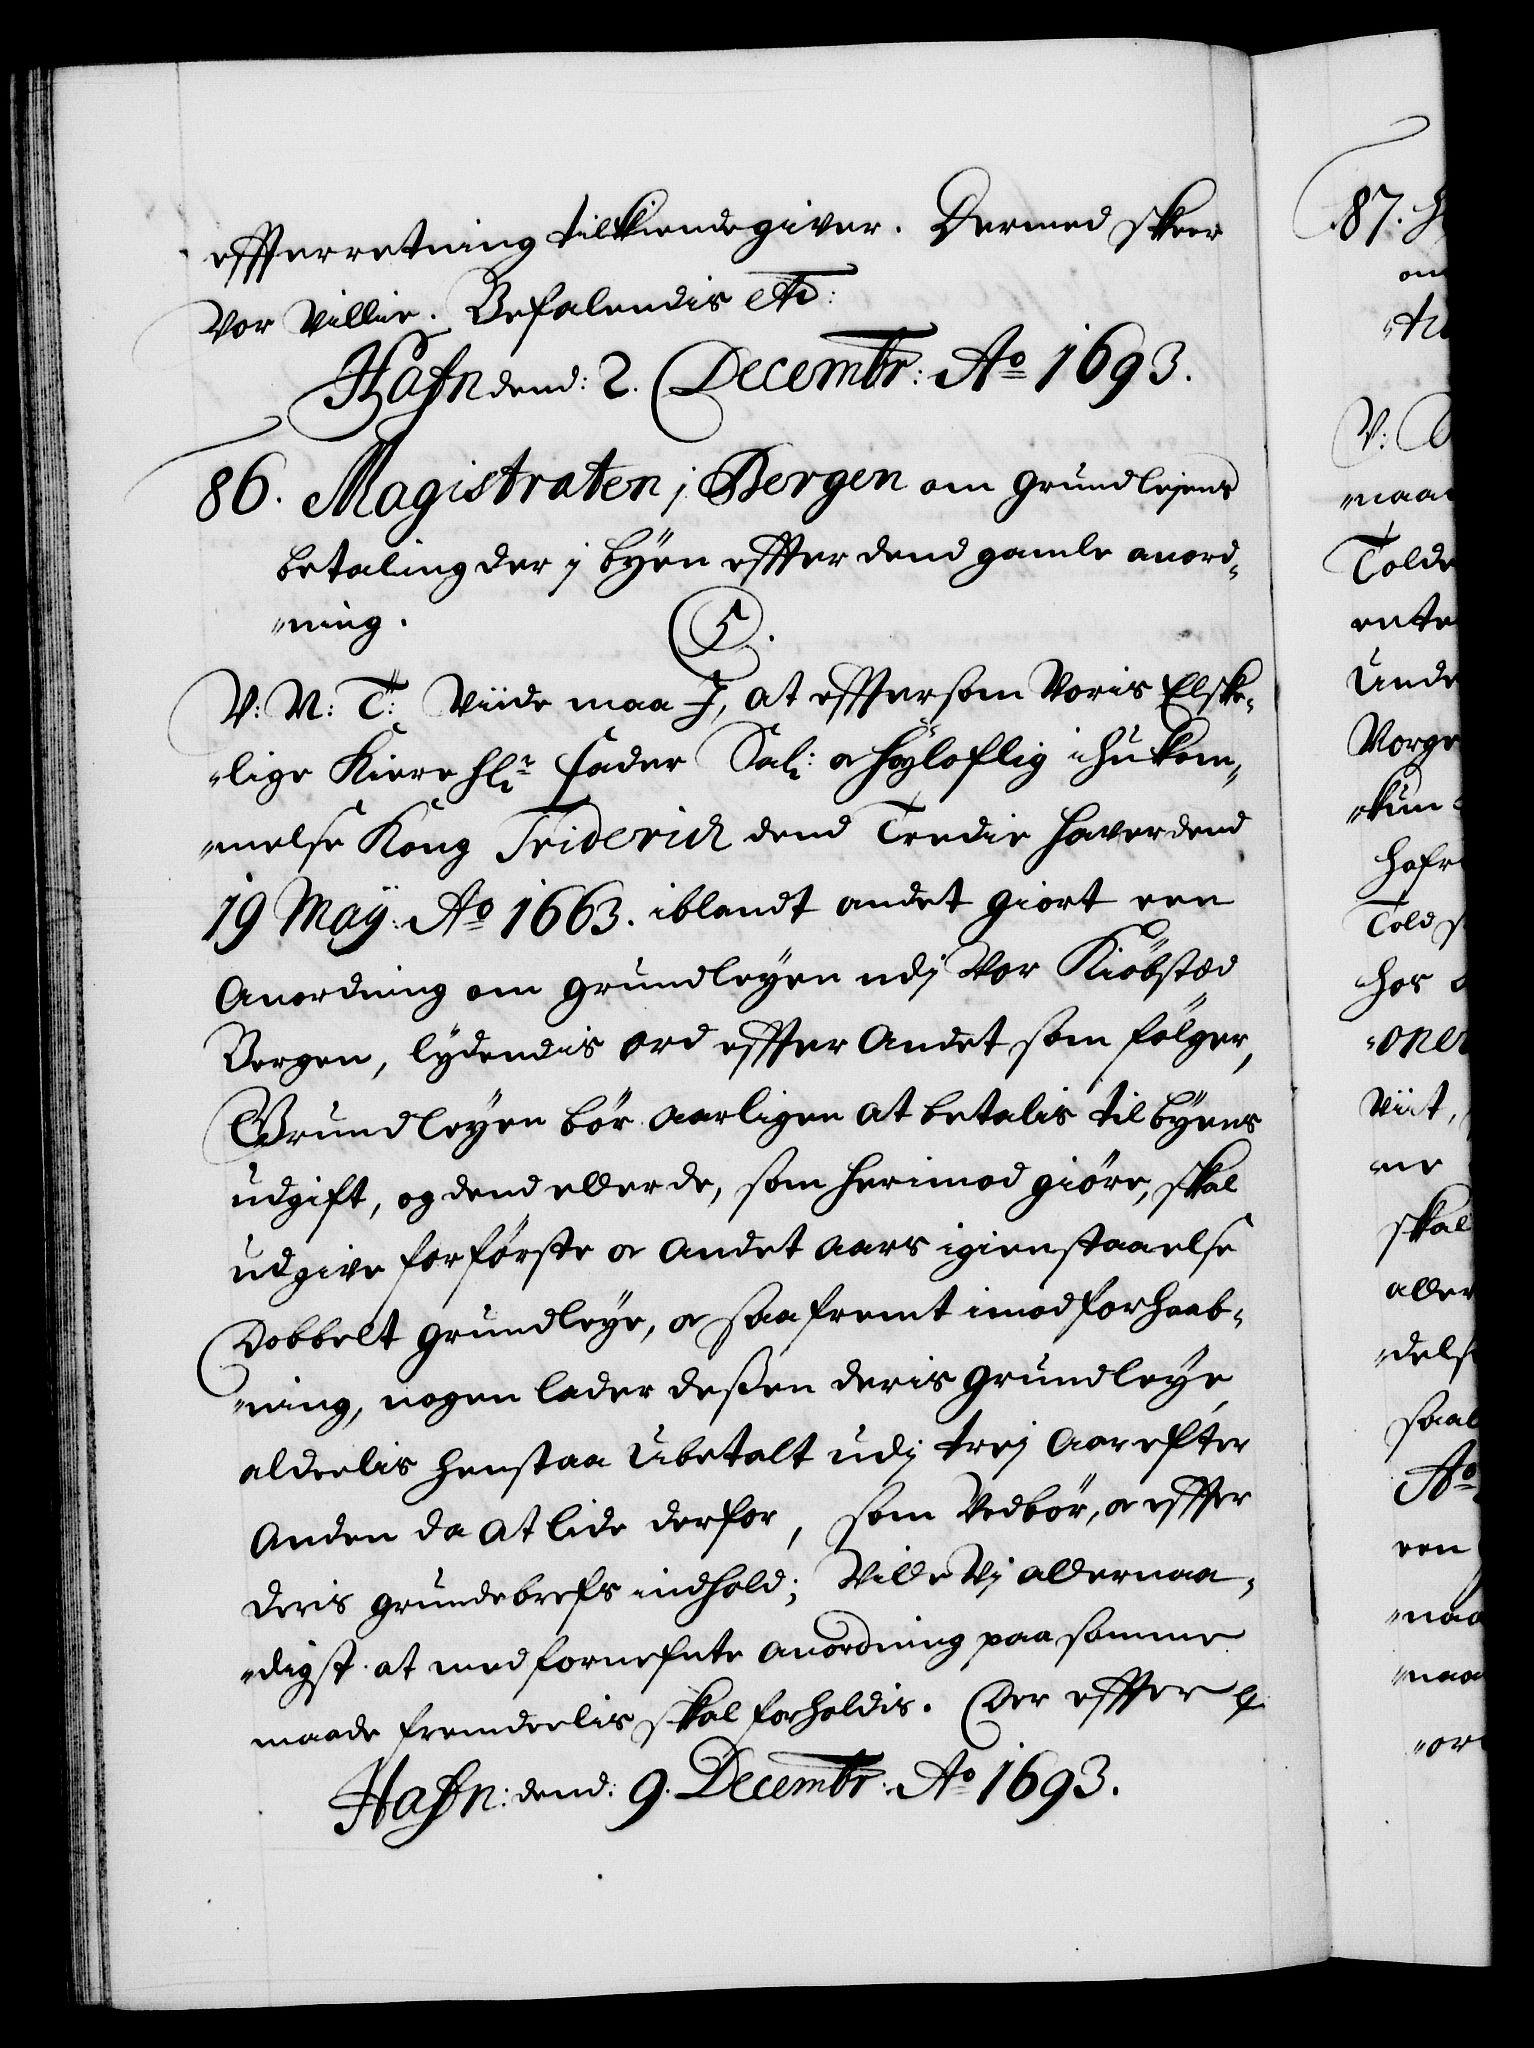 effterretning tilkiendegiver. Dermed skeer
Vor Villie. Befalendis etc:
Hafn dend: 2. Decembr: Ao 1693.
86. Magistraten j Bergen om grundlejens
betaling der j byen effter dend gamle anord„
„ning.
C5.
V: N: T: Viide maa J, at efftersom Voris Elske„
„lige Kiere hl: fader Sal: oc høyloflig ihukom„
„melse Kong Friderich dend Tredie haver dend
19 Maÿ: Ao 1663. iblandt andet giort een
Anordning om grundleyen udj Vor Kiöbstæd
Bergen, lydendis ord effter Andet som fölger,
Grundleyen bör aarligen at betalis til byens
udgift, og dend eller de, som herimod giöre, skal
udgive for förste oc andet aars igienstaaelse
Dobbelt grundleye, oc saafremt imod forhaab„
„ning, nogen lader deßen deris grundleye
aldeelis henstaa Ubetalt udj trej Aar efter
Anden da at lide derfor, som Vedbör, oc effter
deris grundebrefs indhold; Ville Vj allernaa„
„digst at med fornefnte anordning paa samme
maade fremdeelis skal forholdis. Der effter p
Hafn: dend: 9. Decembr: Ao 1693.
87. H
om
V:
maa
Tolde
ente
Unde
Vorge
„kun
hafr
Told s
hos
„oner
Viit,
„ne
skal
aller
„dels
saal
Ao
een
„naa
„naa
„or